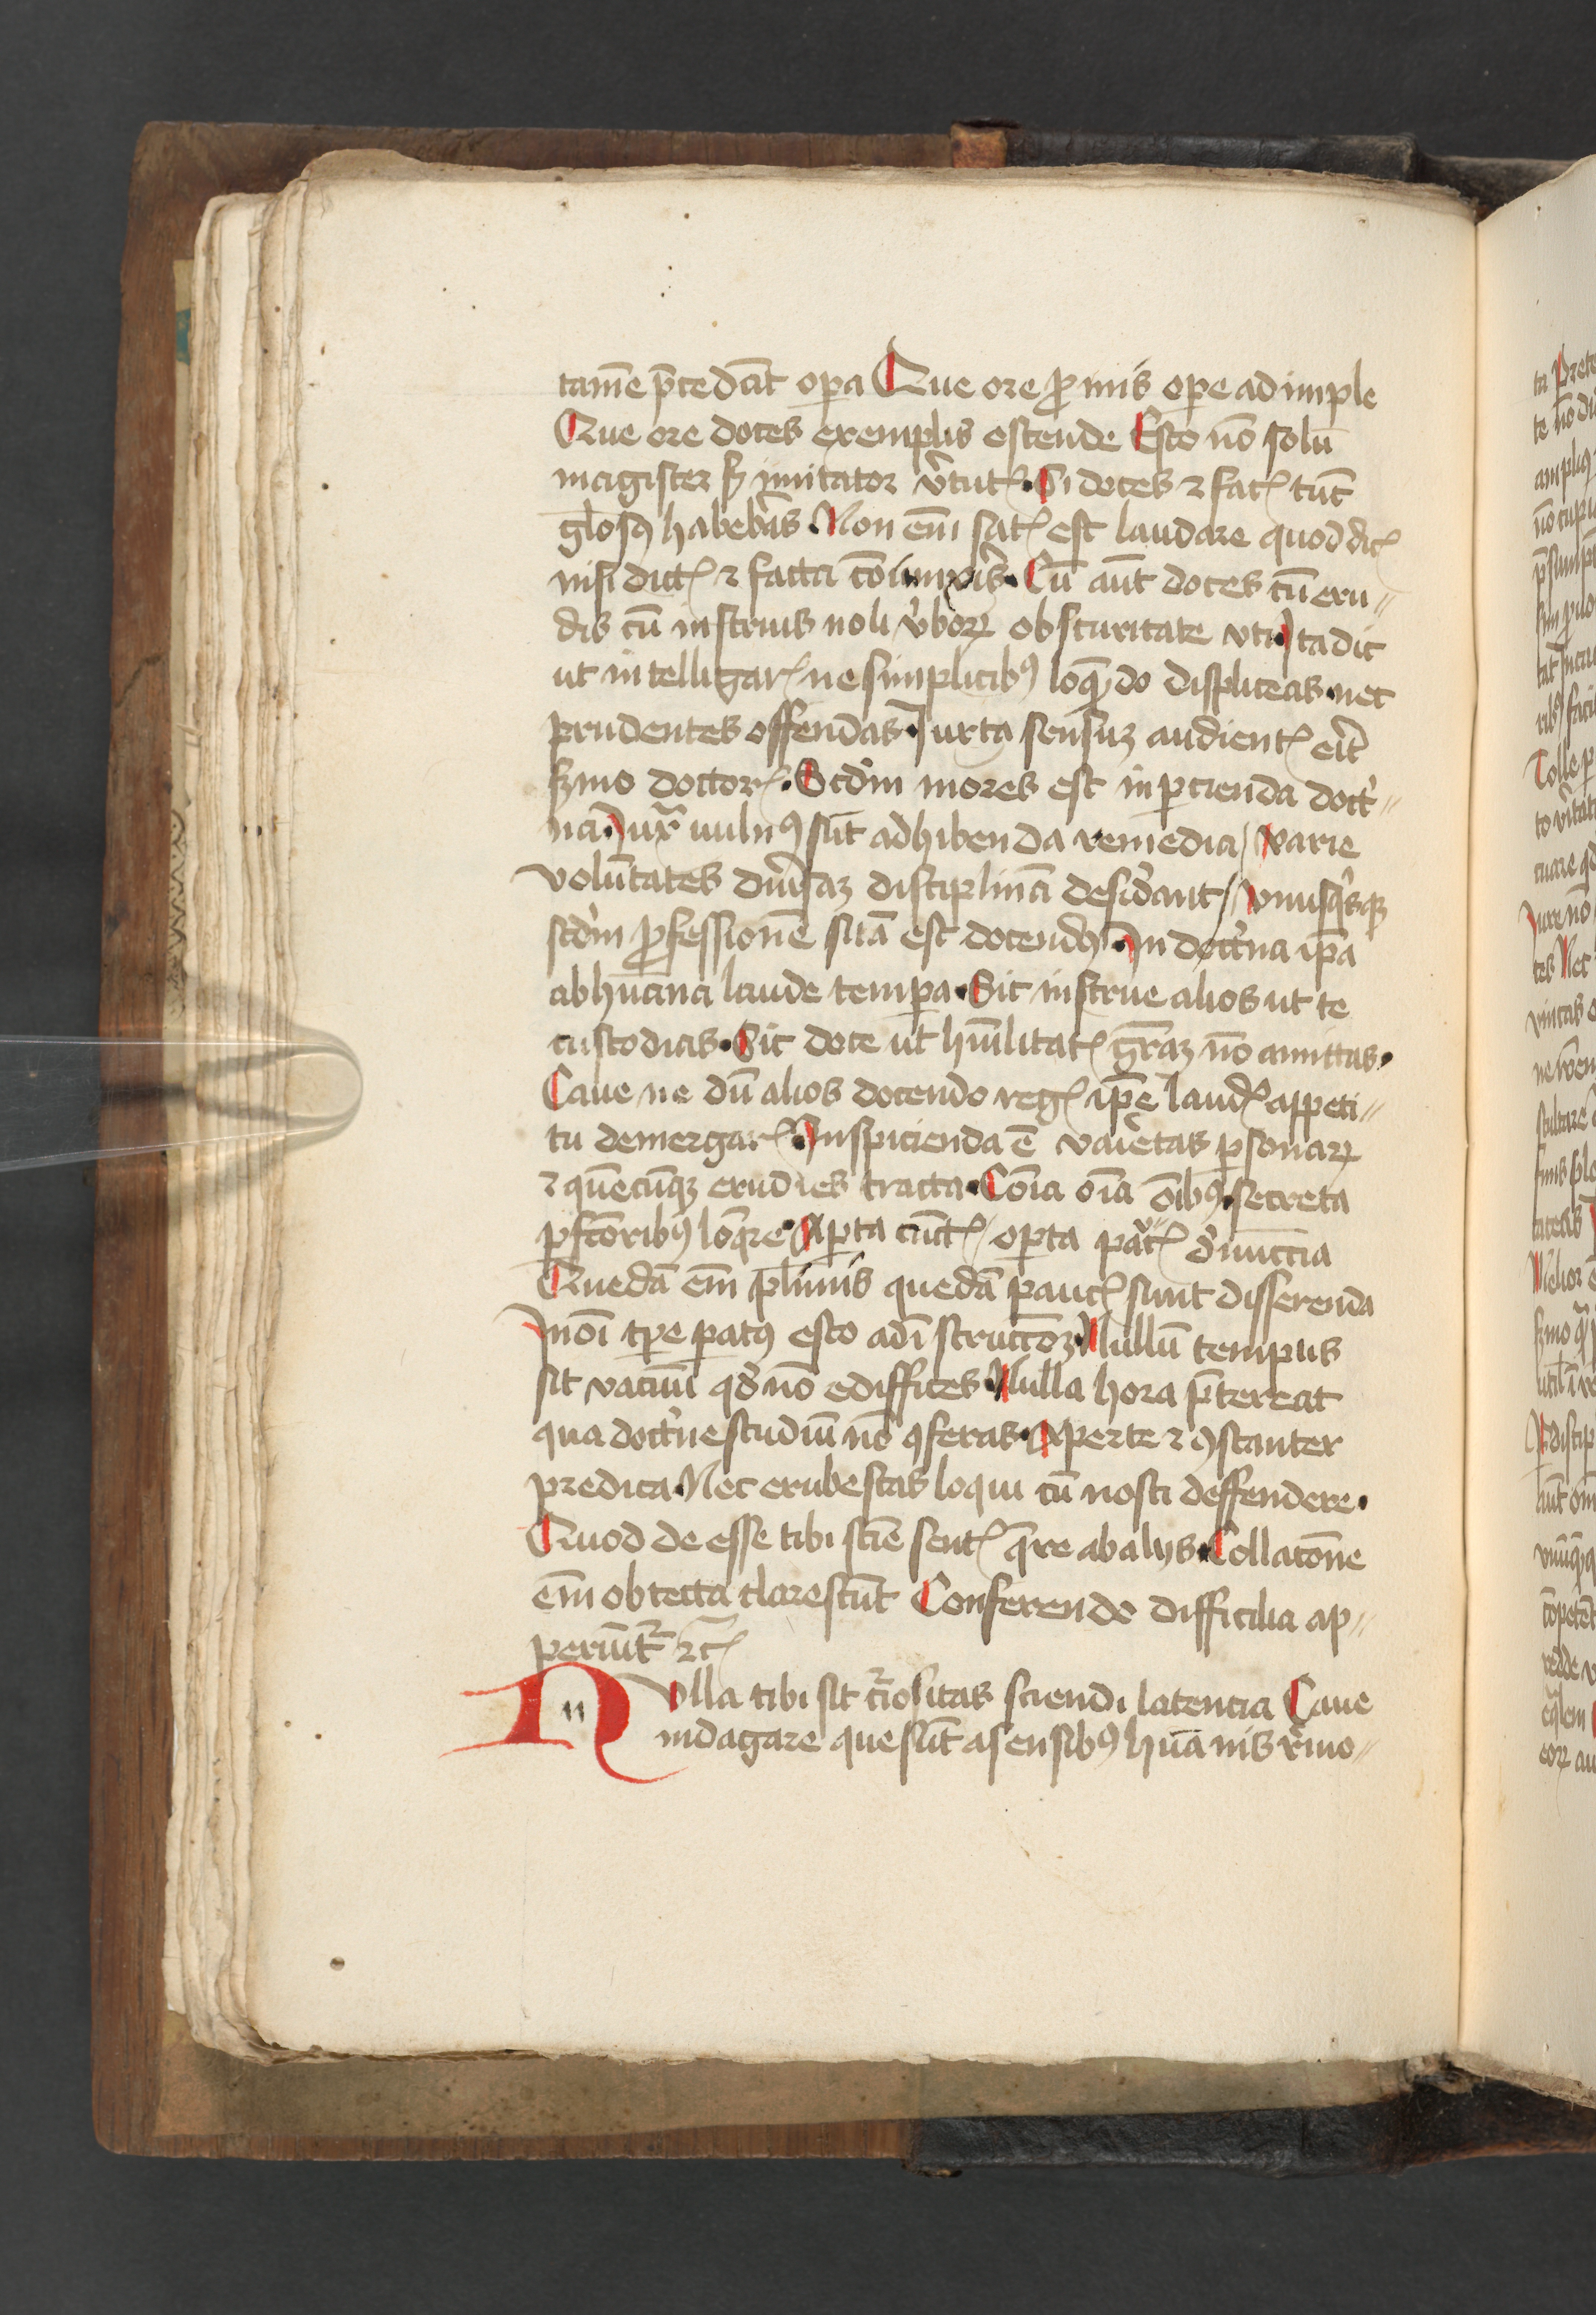 tamē p̄cedāt oꝑa Que ore ꝓmis oꝑe adimple
Que ore doces exemplis ostende Esto nō solū
magister sꝫ imitator v̓tutꝭ. Si doces ⁊ facꝭ tūc
gl̄osꝯ habeb̓is. Non em̄ satꝭ est laudare quod dicꝭ
nisi dictꝭ ⁊ facta cōiunx̓is. Cū aūt doces cū eru〃
dis cū instruis noli v̓boꝝ obscuritate vti. Ita dic
ut intelligarꝭ ne simplicibꝰ loqn̄do displiceas. nec
prudentes offendas. Iuxta sensuꝫ audientꝭ eīt
sꝫmo doctorꝭ. Scd̓m mores est inꝑcienda doctͥ〃
na. Iuxͣ uulnꝰ sūt adhibenda remedia / varie
volūtates diu̓saꝫ disciplinā desid̓ant / vnusqͥsqꝫ
scd̓m ꝓfessionē suā est docendꝰ. In doctͥna ip̄a
ab hūana laude tempa. Sic instrue alios ut te
custodias. Sic doce ut hūilitatꝭ gr̄aꝫ nō amittas.
Caue ne dū alios docendo regꝭ ip̄e laudꝭ appeti〃
tu demergarꝭ. Inspicienda ē vaīetas ꝑsonaꝝ
⁊ quēcūqꝫ erudies tracta. Cōia oīa oībꝰ. secreta
ꝑfcōribꝰ loq̄re. Aꝑta cūctꝭ / oꝑta paͧcꝭ d̓nuccia
Quedā em̄ pl̄imis quedā paucꝭ sunt disserenda
In oī tꝑe ꝑatꝰ esto ad īstructōꝫ. Nullū tempus
sit vacuū qd̓ nō edifices. Nulla hora p̄tereat
qua doctͥne studiū nō ꝯferas. Aperte ⁊ ꝯstanter
predica. Nec erubescas loqui cū nosti deffendere.
Quod deesse tibi sciē sentꝭ q̄re ab alijs. Collatōne
em̄ obtecta clarescūt Conferendo difficilia ap〃
periūtᷣ ⁊cꝭ
Nulla tibi sit cͥiositas sciendi latencia Caue
indagare que sūt a sensibꝰ hūanis r̓mo〃